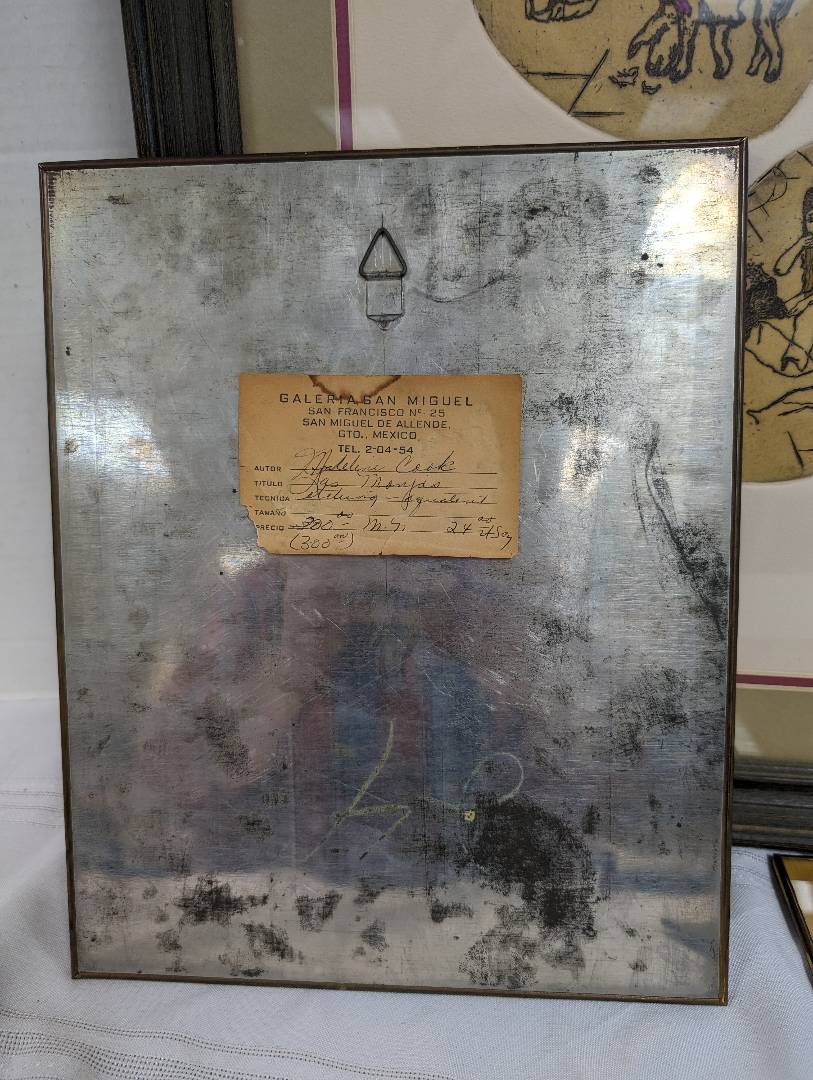 GALERIA SAN MIGUEL
SAN FRANCISCO Nº 25
SAN MIGUEL DE ALLENDE,
GTO., MEXICO
TEL. 2-04-54
AUTOR Madeline Cook
TITULO Monjas
TECNICA etching -
TAMAÑO
PRECIO 300 00 - M.N. 24 00
(300 00)